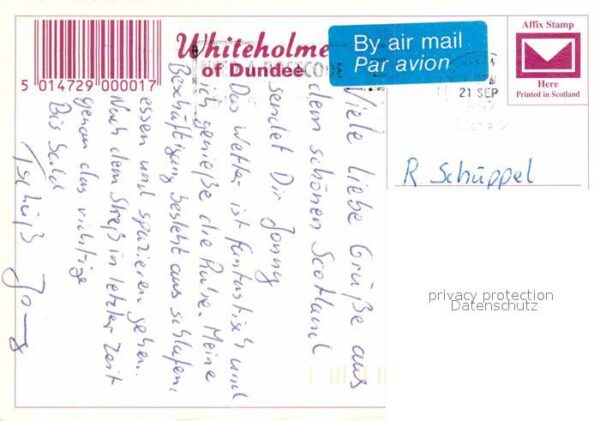 5 014729 000017
Whiteholme
of Dundee
By air mail
Par avion
21 SEP
Affix Stamp
Here
Printed in Scotland
R Schüppel
privacy protection
Datenschutz
Viele liebe Grüße aus
dem schönen Scotland
sendet Dir Jonny
Das Wetter ist fantastisch und
ich genieße die Ruhe. Meine
Beschäftigung besteht aus schlafen,
essen und spazieren gehen.
Nach dem Streß in letzter Zeit
genau das richtige
Bis bald
Tschüß